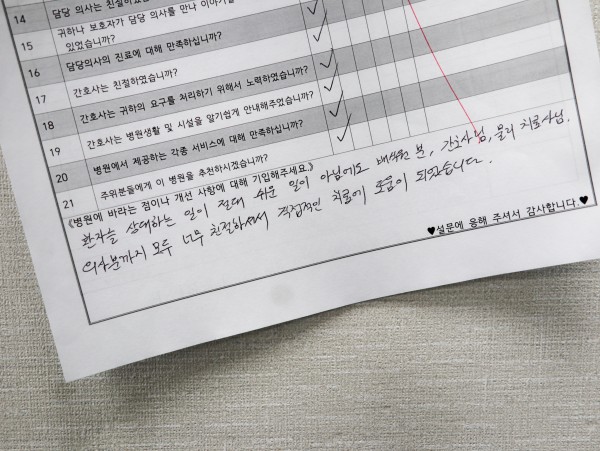 14 담당 의사는 친절하였습
15 귀하나 보호자가 담당 의사를 만나 이야기할
있었습니까?
16 담당의사의 진료에 대해 만족하십니까?
17 간호사는 친절하였습니까?
18 간호사는 귀하의 요구를 처리하기 위해서 노력하였습니까?
19 간호사는 병원생활 및 시설을 알기쉽게 안내해주었습니까?
20 병원에서 제공하는 각종 서비스에 대해 만족하십니까?
21 주위분들에게 이 병원을 추천하시겠습니까?
《병원에 바라는 점이나 개선 사항에 대해 기입해주세요.》
환자를 상대하는 일이 절대 쉬운 일이 아님에도 분, 간호사님, 물리 치료사님.
의사분까지 모두 너무 친절하셔서 직접적인 치료에 도움이 되었습니다.
♥설문에 응해 주셔서 감사합니다.♥